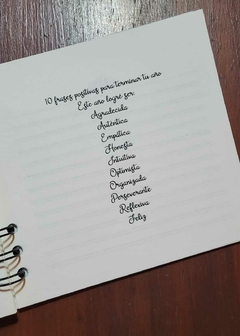 10 frases positivas para terminar tu año
Este año logré ser:
Agradecida
Auténtica
Empática
Honesta
Intuitiva
Optimista
Organizada
Perseverante
Reflexiva
Feliz